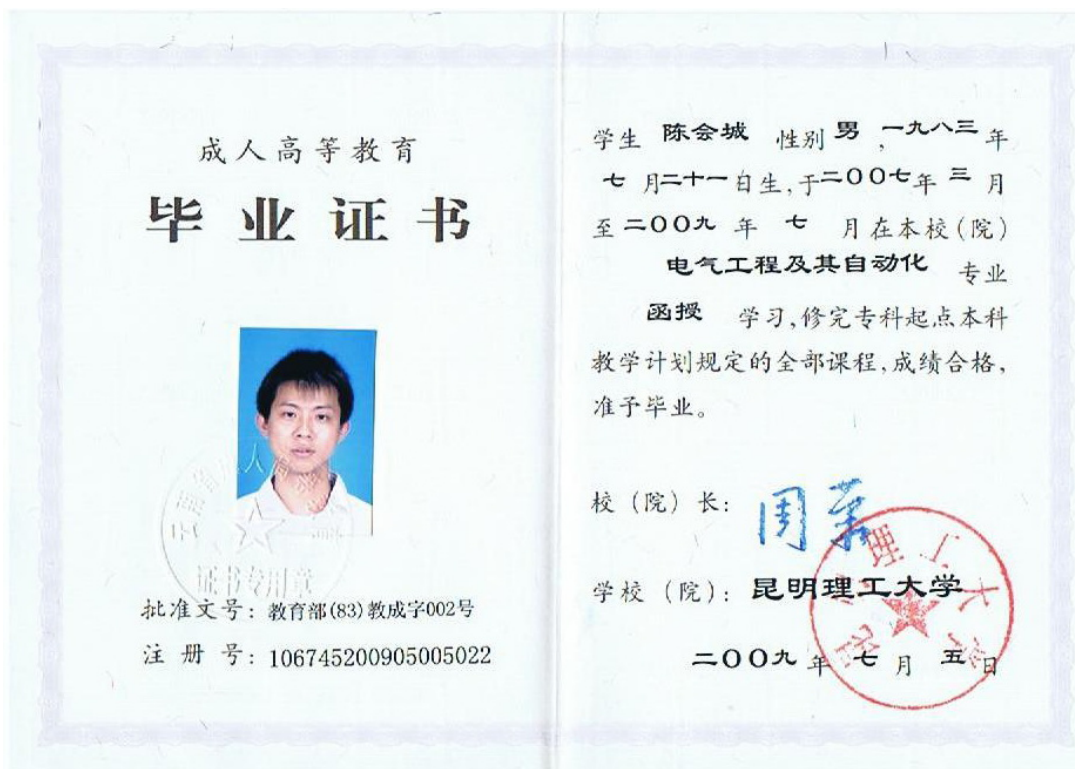 成人高等教育
毕业证书
证书专用章
批准文号：教育部(83)教成字002号
注册号：106745200905005022
学生 陈会城 性别 男，一九八三年
七月二十一日生，于二〇〇七年三月
至二〇〇九年七月在本校（院）
电气工程及其自动化 专业
函授 学习，修完专科起点本科
教学计划规定的全部课程，成绩合格，
准予毕业。
校（院）长：
学校（院）：昆明理工大学
二〇〇九年七月五日